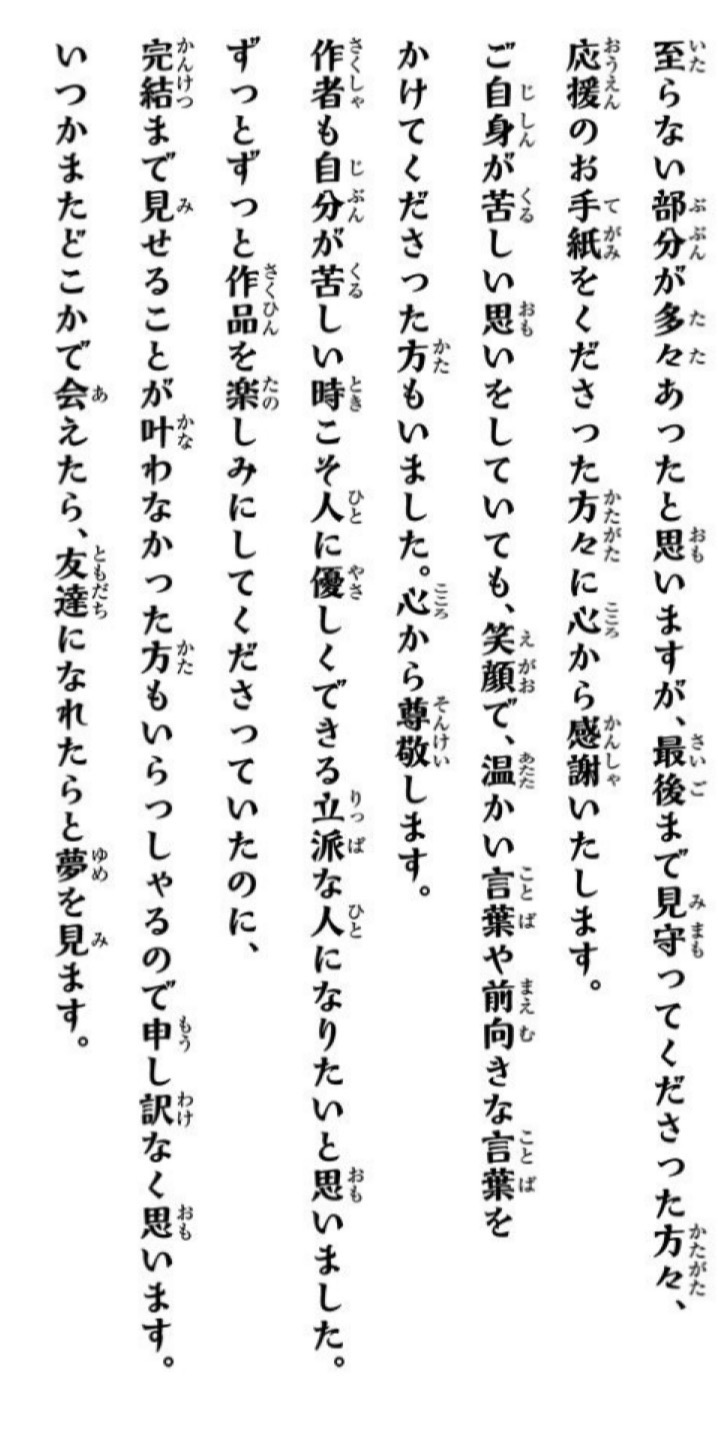 至らない部分が多々あったと思いますが、最後まで見守ってくださった方々、
応援のお手紙をくださった方々に心から感謝いたします。
ご自身が苦しい思いをしていても、笑顔で、温かい言葉や前向きな言葉を
かけてくださった方もいました。心から尊敬します。
作者も自分が苦しい時こそ人に優しくできる立派な人になりたいと思いました。
ずっとずっと作品を楽しみにしてくださっていたのに、
完結まで見せることが叶わなかった方もいらっしゃるので申し訳なく思います。
いつかまたどこかで会えたら、友達になれたらと夢を見ます。